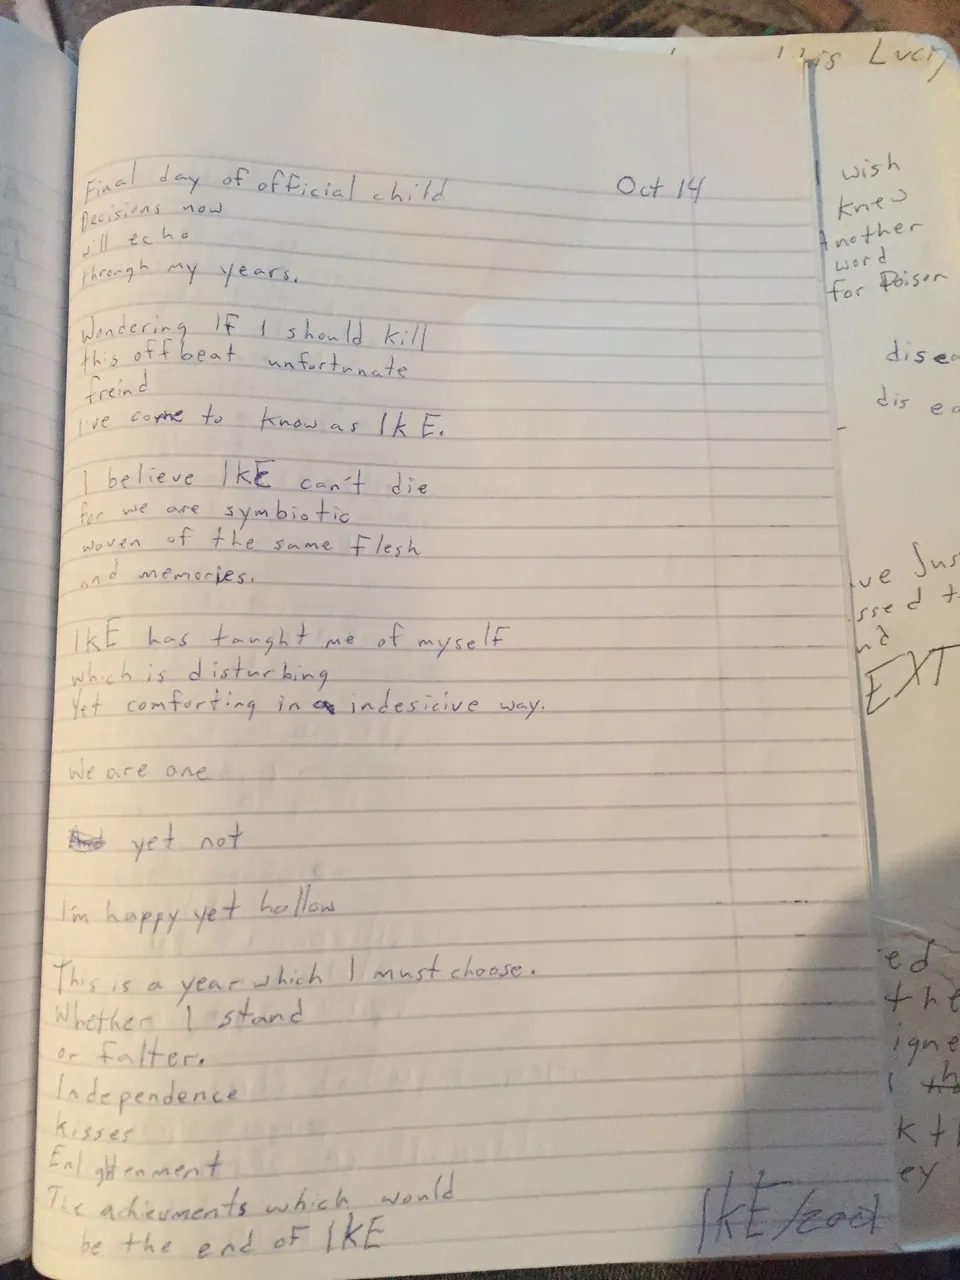 Final day of official child Oct 14
Decisions now
will echo
through my years.
Wondering If I should kill
this offbeat unfortunate
freind
I've come to know as IkE.
I believe IkE can't die
for we are symbiotic
woven of the same flesh
and memories.
IkE has taught me of myself
which is disturbing
Yet comforting in a indesicive way.
We are one
yet not
I'm happy yet hollow
This is a year which I must choose.
Whether I stand
or falter.
Independence
kisses
Enlightenment
The achievments which would
be the end of IkE
IkE/zook
is Lucy
wish
knew
Another
word
for Poison
disea
dis ea
ve Jus
ssed t
nd
EXT
ed
the
igne
I
k th
ey